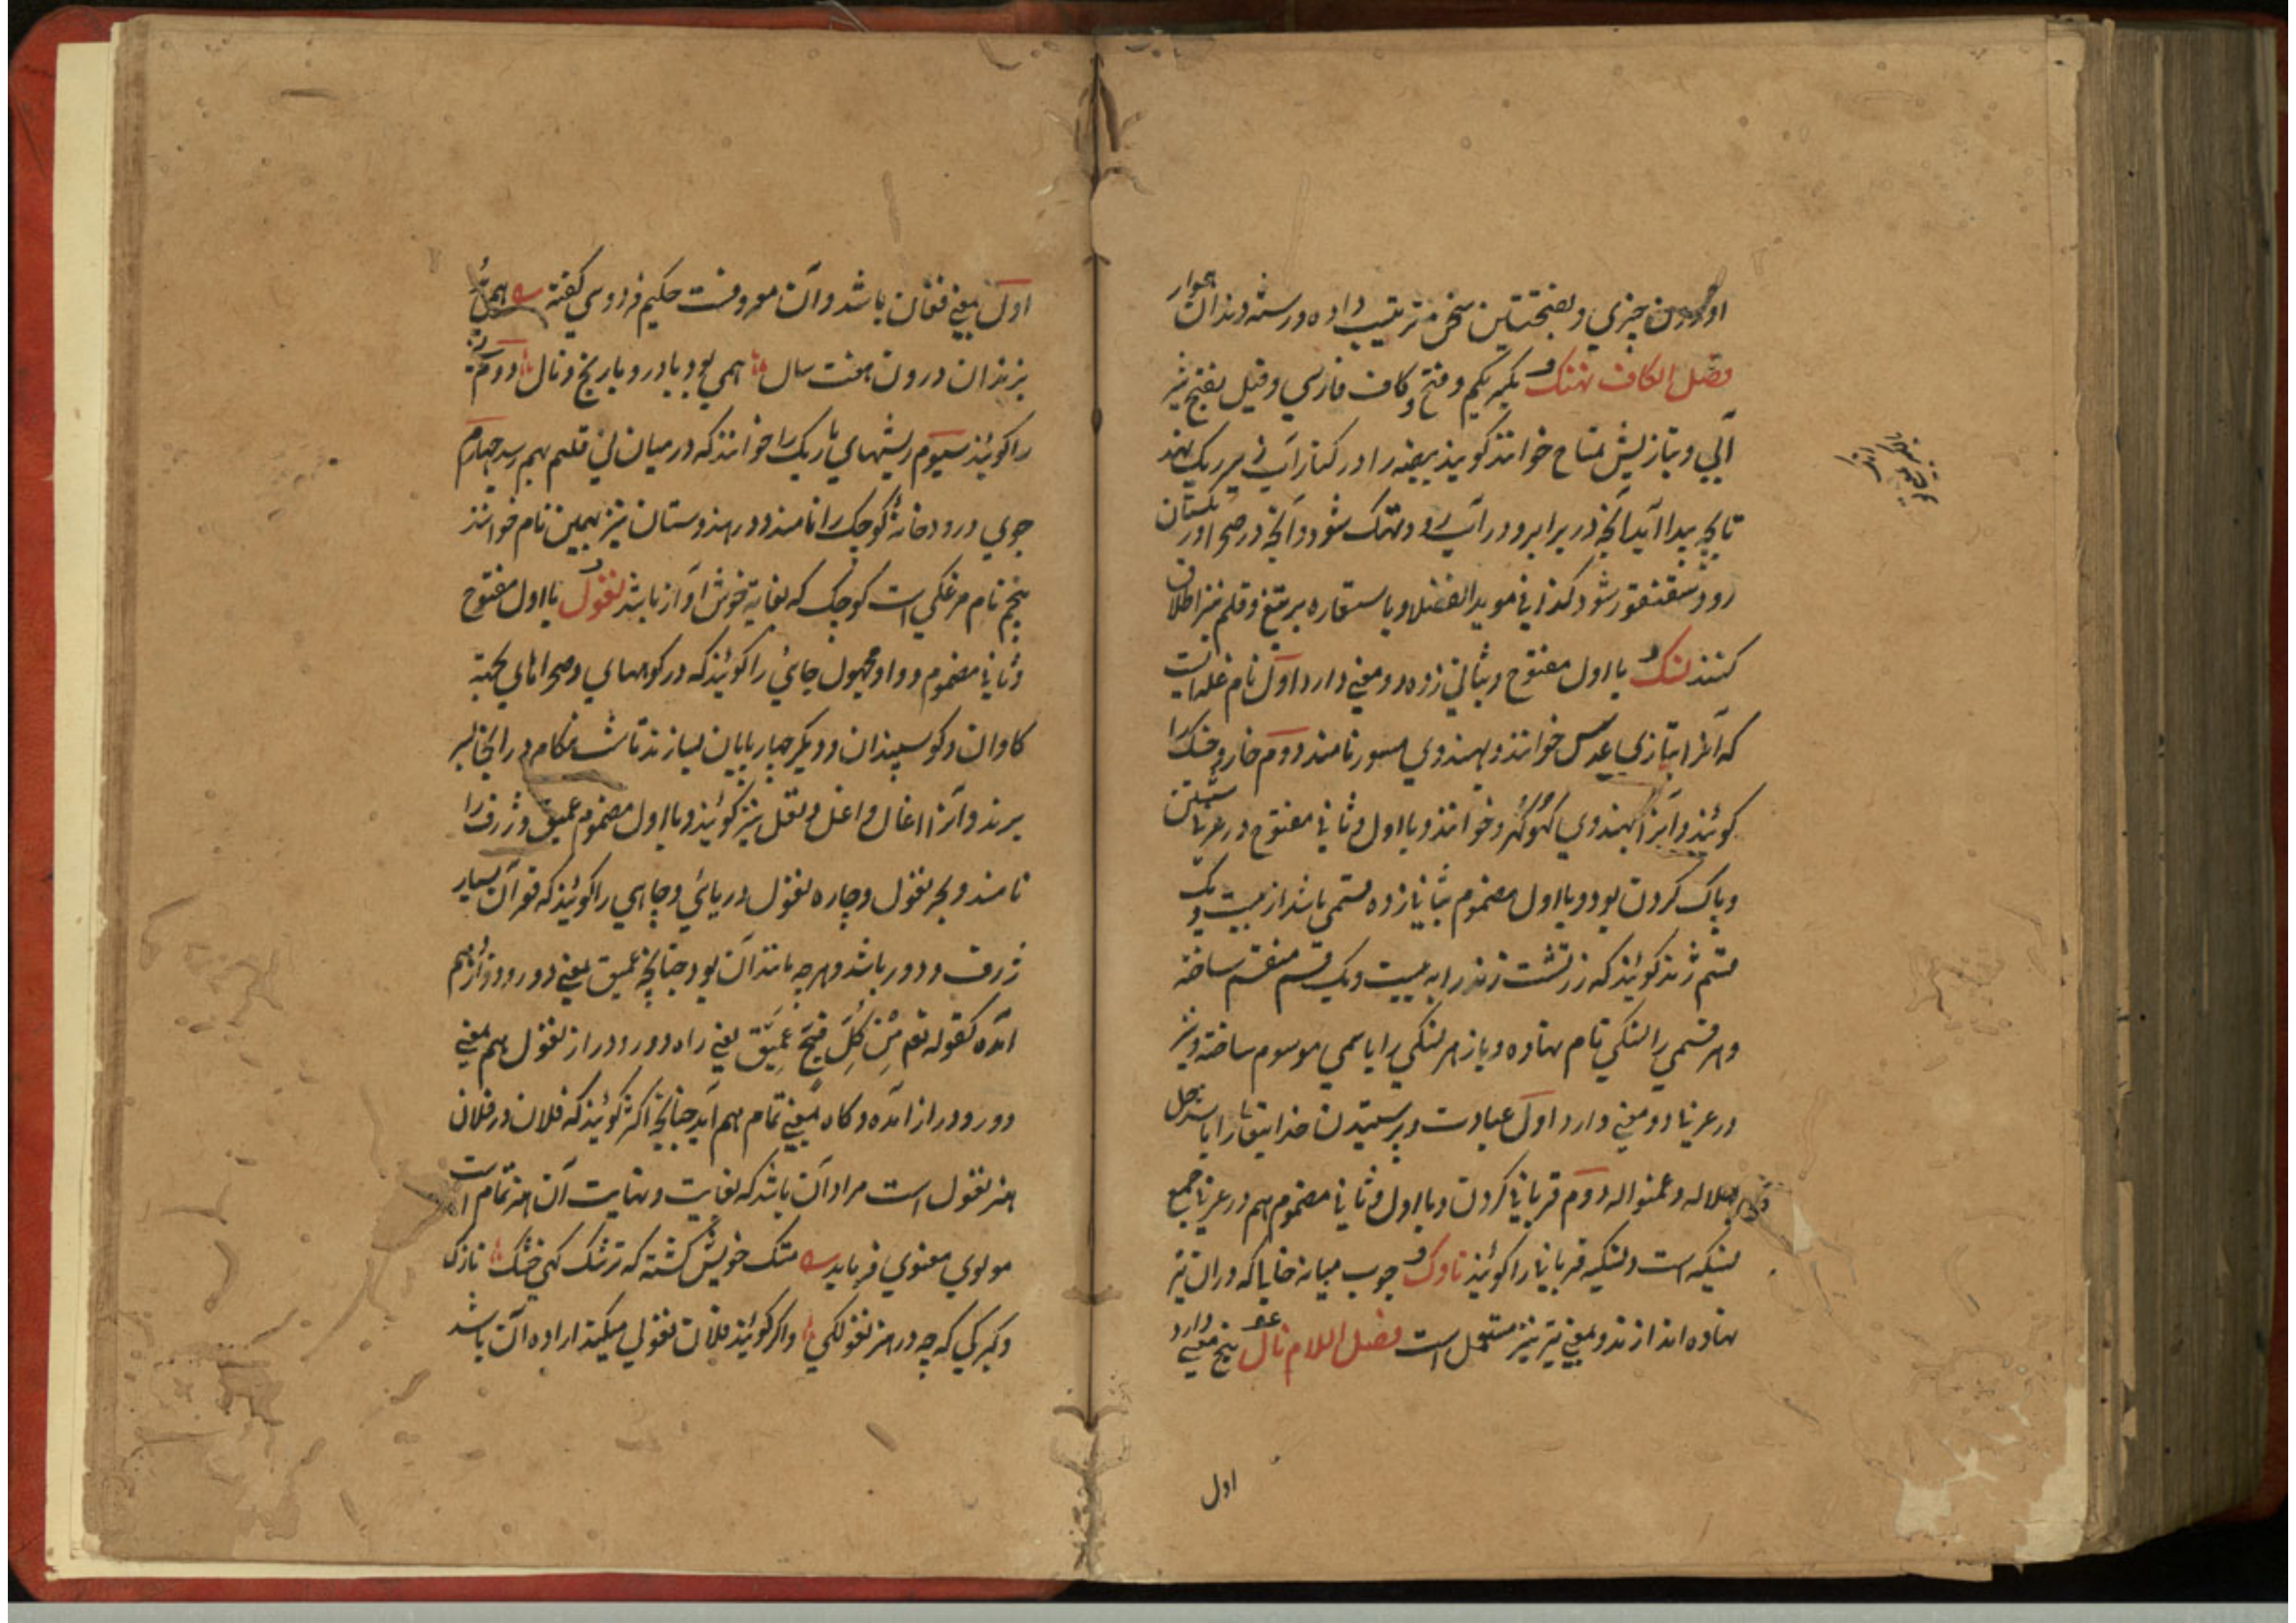 اوردن چیزي و بفتحتین سخن ترتیب داده و رسته دندان هموار
فصل الکاف نهنک بکسر یکم و فتح و کاف فارسي و قیل بفتح نیز
آبي و بتازیش تمساح خوانند کویند بیضه را در کنار آب في بر ریک نهد
تا بچه پیدا آید آنچه در برابر و در آب رود نهنک شود و آنچه در صحرا و ریکستان
رود سقنقور شود کذا في موید الفضلا و باستعاره بر تیغ و قلم نیز اطلاق
کنند نسک با اول مفتوح و بثاني زده دو معني دارد اول نام غله ایست
که آنرا بتازي عدس خوانند و بهندوي مسور نامند دوم خار و خسک را
کویند و آنرا بهندوي کهوکهرو خوانند و با اول و ثاني مفتوح در عربي شستن
و پاک کردن بود و با اول مضموم بثاني زده قسمي باشد از بیست و یک
قسم ژند کویند که زرتشت زند را به بیست و یک قسم منقسم ساخته
و هر قسمي را نسکي نام نهاده و باز هر نسکي را باسمي موسوم ساخته و نیز
در عربي دو معني دارد اول عبادت و پرستیدن خدایتعالی را باشد جل
جلاله و عم نواله دوم قرباني کردن و با اول و ثاني مضموم هم در عربي جمع
نسیکه است و نسیکه قرباني را کویند ناوک چوب میانه خالیا که دران تیر
نهاده اندازند و بمعني تیر نیز مستعمل است فصل اللام نال پنج معني دارد
اول
اول بمعني فغان باشد و آن معروفست حکیم فردوسي کفته همي
بزندان درون هفت سال همي بود با درد و با رنج و نال دوم
را کویند سیوم ریشهاي باریک را خوانند که در میان ني قلم بهم رسد چهارم
جوي و رودخانه کوچک را نامند و در هندوستان نیز بهمین نام خوانند
پنجم نام مرغکي است کوچک که بغایة خوش آواز باشد نغول با اول مفتوح
و ثاني مضموم و واو مجهول جائي را کویند که در کوههاي و صحراهاي بجهة
کاوان و کوسپندان و دیکر چهارپایان بسازند تا شب هنکام در انجا بسر
برند و آنرا آغال و آغل و نغل نیز کویند و با اول مضموم عمیق و ژرف را
نامند و بحر نغول و چاره نغول دریائي و چاهي را کویند که قعر آن بسیار
ژرف و دور باشد و هر چه مانند آن بود چنانچه عمیق بمعني دور و دراز هم
آمده کقوله تع من کل فج عمیق یعني راه دور و دراز نغول هم بمعني
دور و دراز آمده و کاه بمعني تمام هم آید چنانچه اکثر کویند که فلان در فلان
هنر نغول است مراد آن باشد که بغایت و نهایت آن هنر تمام است
مولوي معنوي فرماید متک خویش کشته که ترشک کهي خنک نازک
و کبرکي که چه در هنر نغولکي و اکر کویند فلان نغولي میکند اراده آن باشد